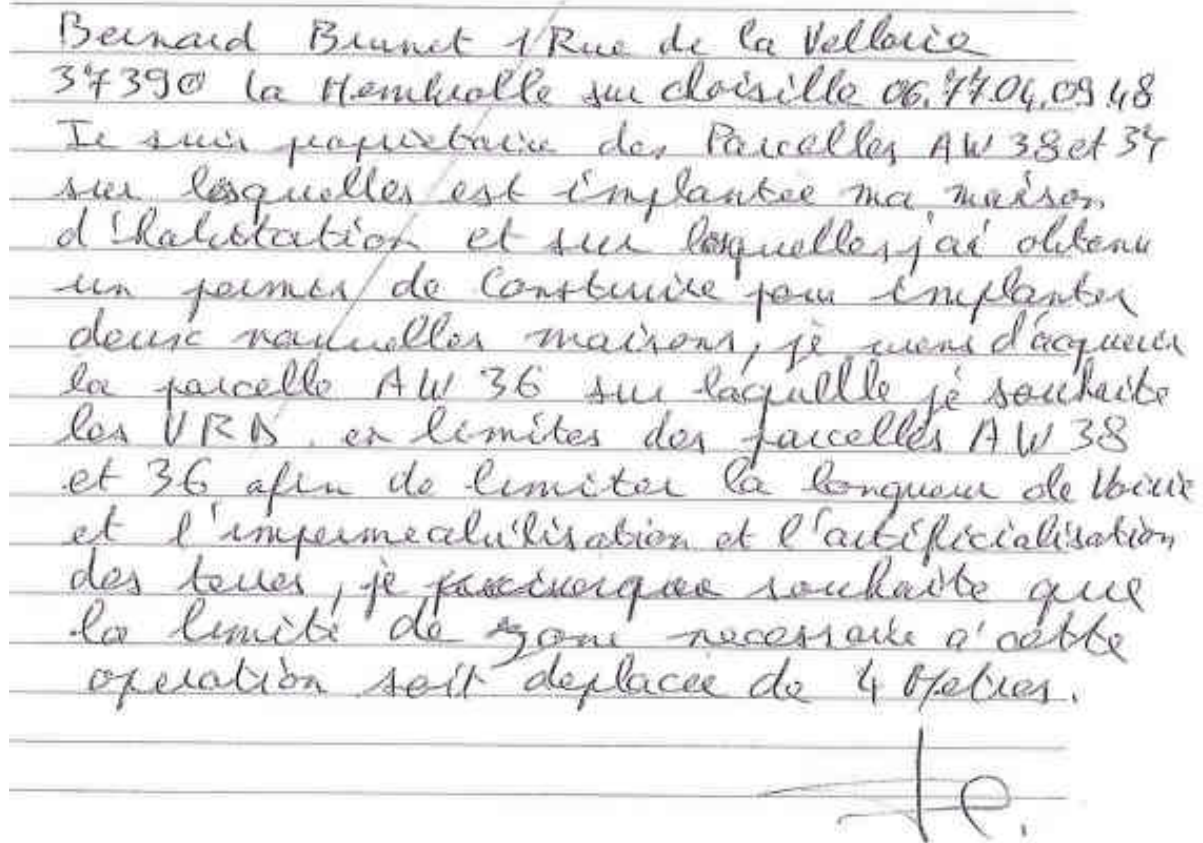 Bernard Brunet 1 Rue de la Velleria
37390 la Membrolle sur choisille 06.77.04.09.48
Je suis propietaire des Parcelles AW 38 et 37
sur lesquelles est implantée ma maison
d'habitation et sur lesquelles j'ai obtenu
un permis de Construire pour implanter
deux nouvelles maisons, je viens d'acquerir
la parcelle AW 36 sur laquelle je souhaite
les VRD. en limites des parcelles AW 38
et 36 afin de limiter la longueur de Voirie
et l'impermeabilisation et l'artificialisation
des terres, je souhaite que
la limite de zone necessaire a cette
operation soit deplacée de 4 Metres.